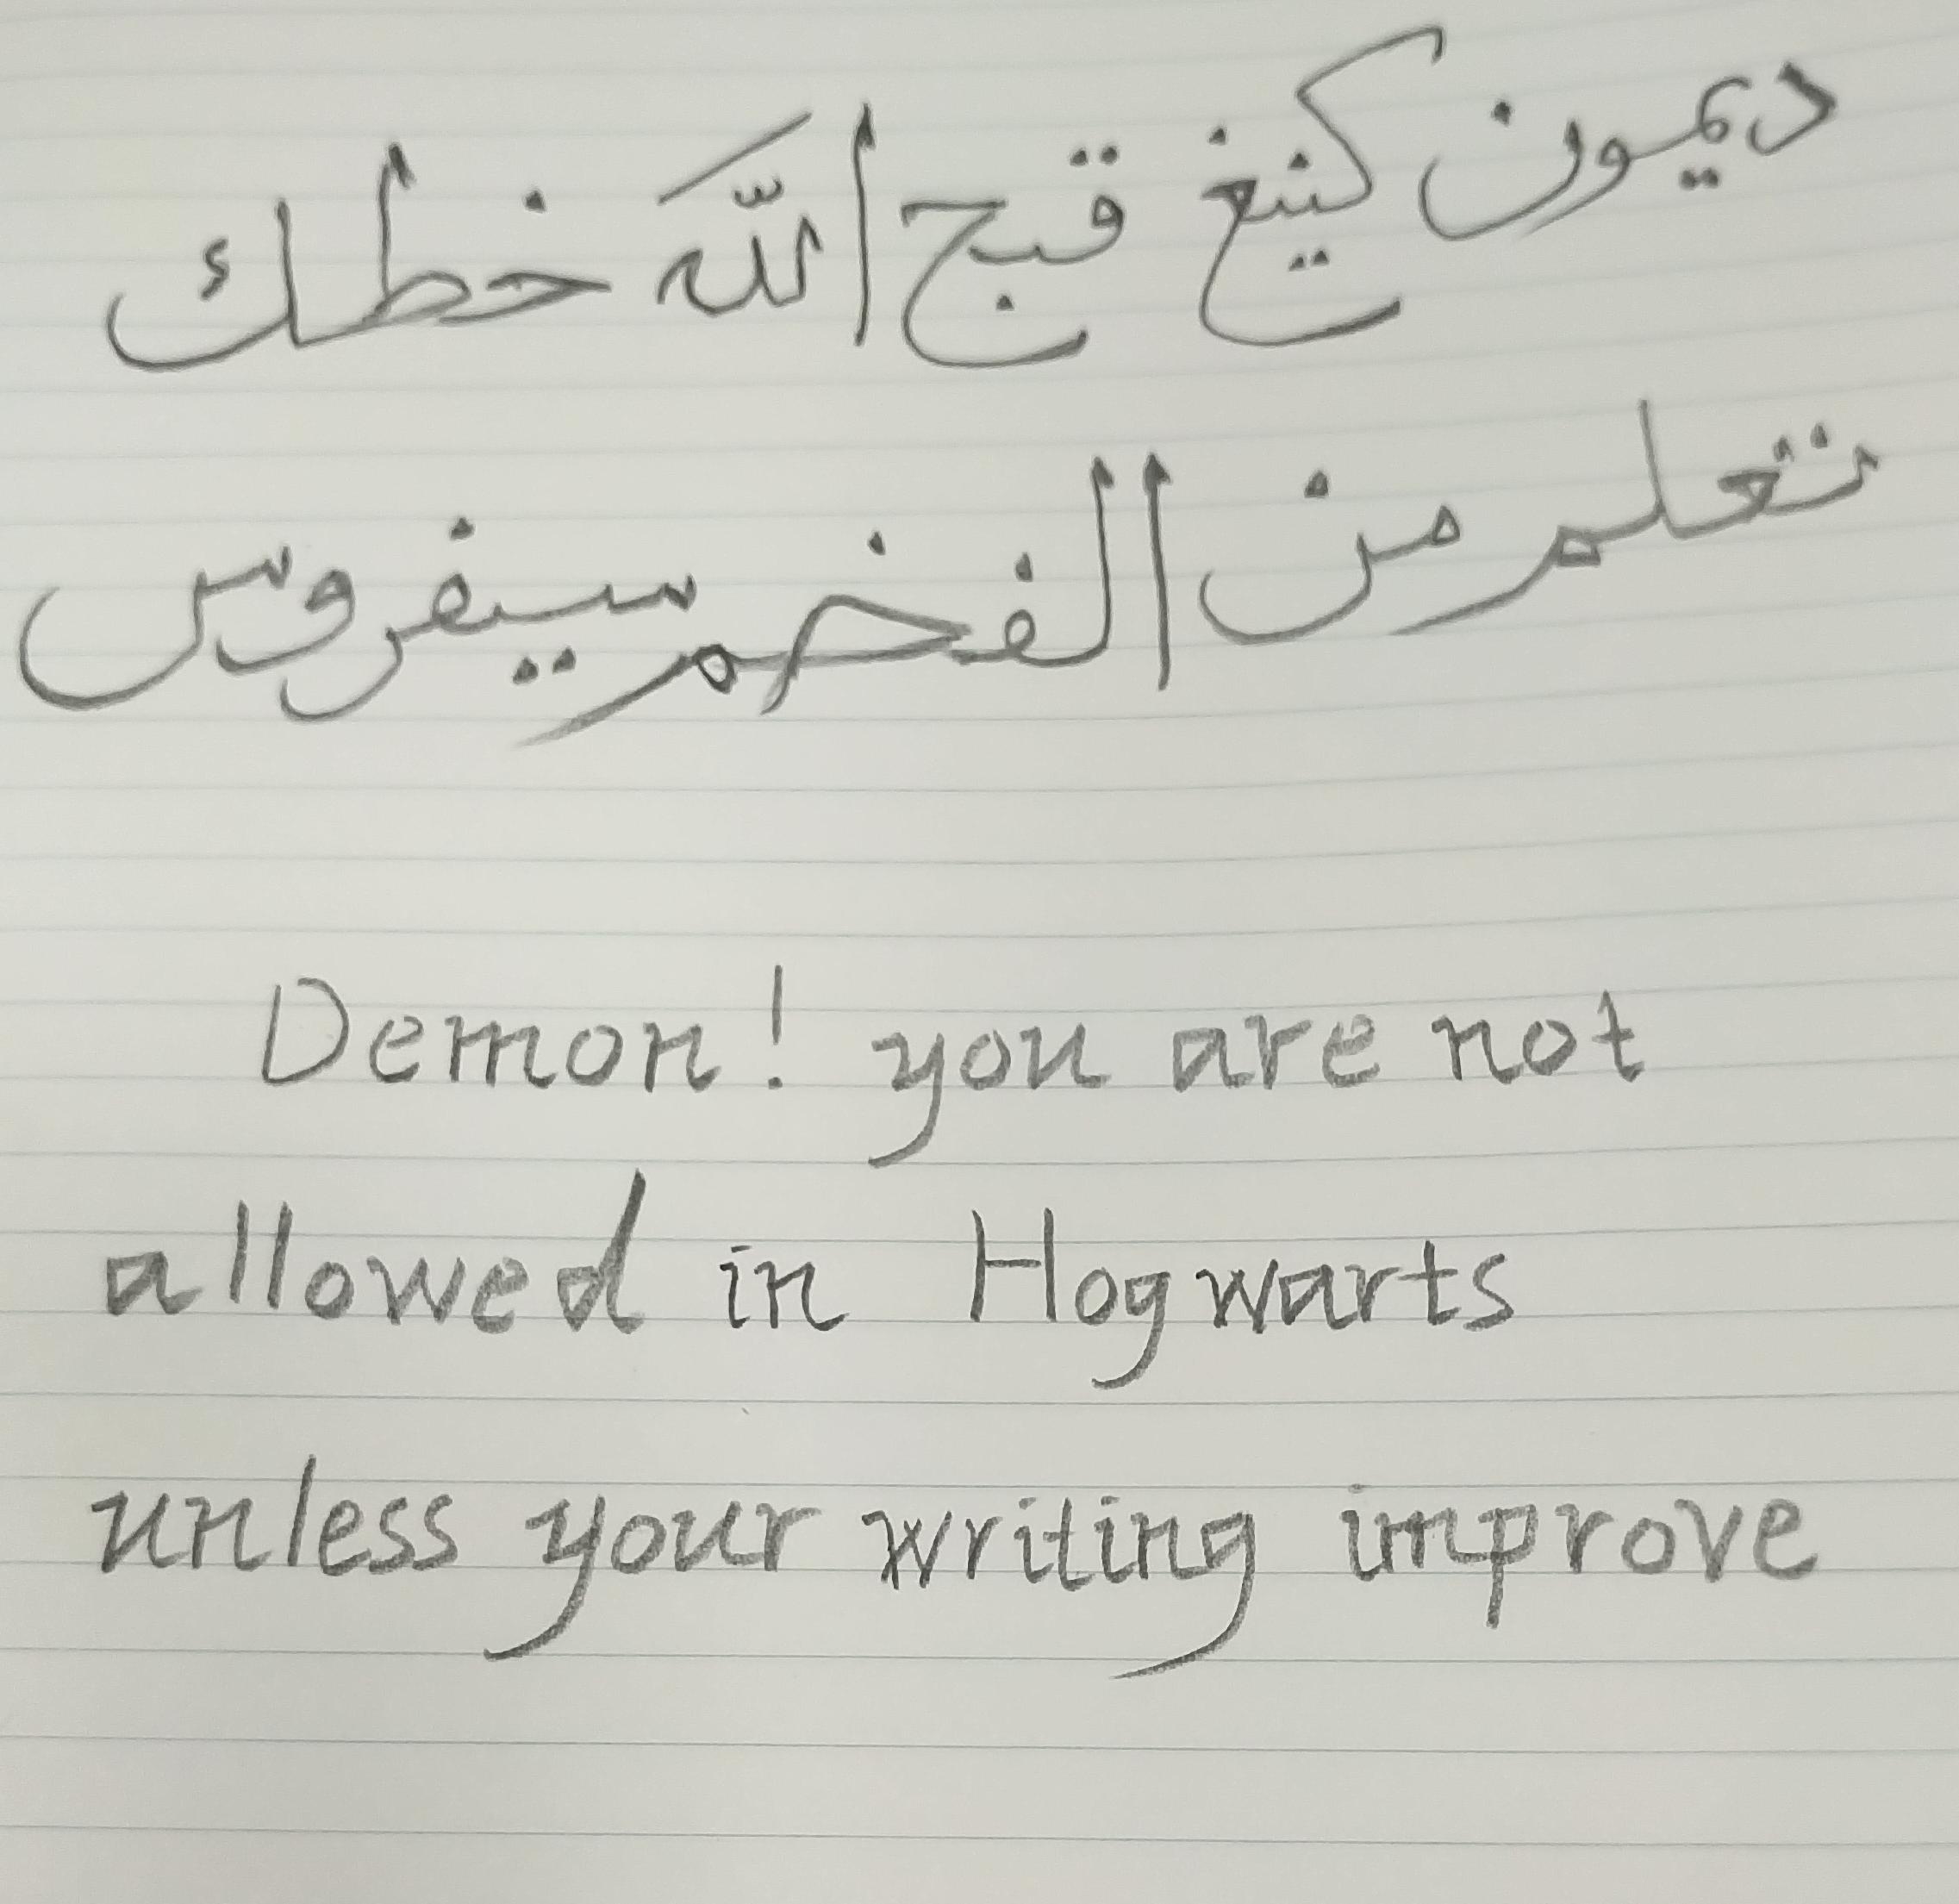 ديمون كينغ قبج الله خطك
تعلم من الفخم سيفروس
Demon! you are not
allowed in Hogwarts
unless your writing improve